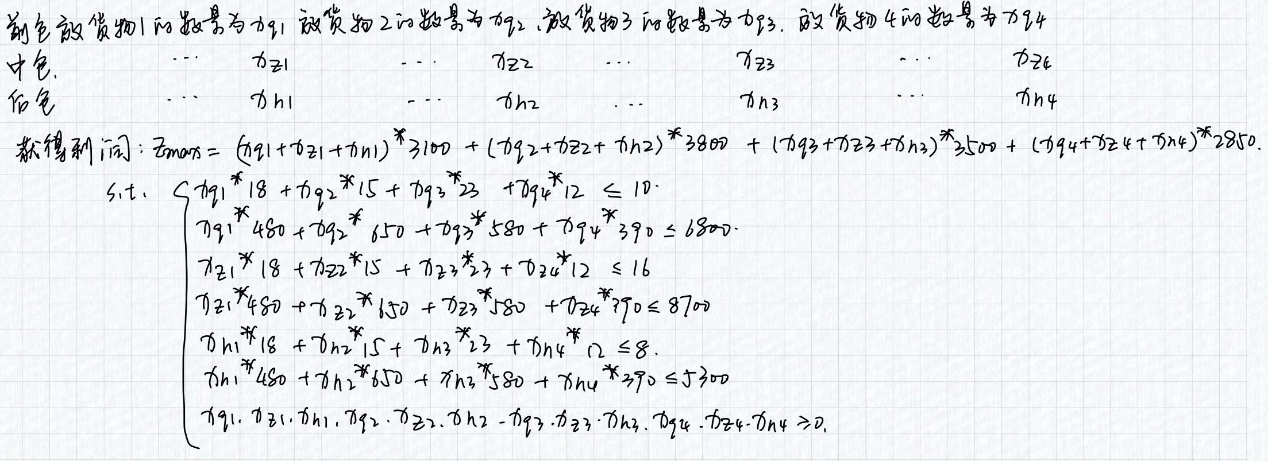 前仓放货物1的数量为xq1 放货物2的数量为xq2、放货物3的数量为xq3. 放货物4的数量为xq4
中仓. ... xz1 ... xz2 ... xz3 ... xz4
后仓 ... xh1 ... xh2 ... xh3 ... xh4
获得利润: Zmax = (xq1+xz1+xh1)*3100 + (xq2+xz2+xh2)*3800 + (xq3+xz3+xh3)*3500 + (xq4+xz4+xh4)*2850.
s.t. { xq1*18 + xq2*15 + xq3*23 + xq4*12 ≤ 10.
xq1*480 + xq2*650 + xq3*580 + xq4*390 ≤ 6800.
xz1*18 + xz2*15 + xz3*23 + xz4*12 ≤ 16
xz1*480 + xz2*650 + xz3*580 + xz4*390 ≤ 8700
xh1*18 + xh2*15 + xh3*23 + xh4*12 ≤ 8.
xh1*480 + xh2*650 + xh3*580 + xh4*390 ≤ 5300
xq1. xz1. xh1. xq2. xz2. xh2 - xq3. xz3. xh3. xq4. xz4. xh4 ≥ 0.